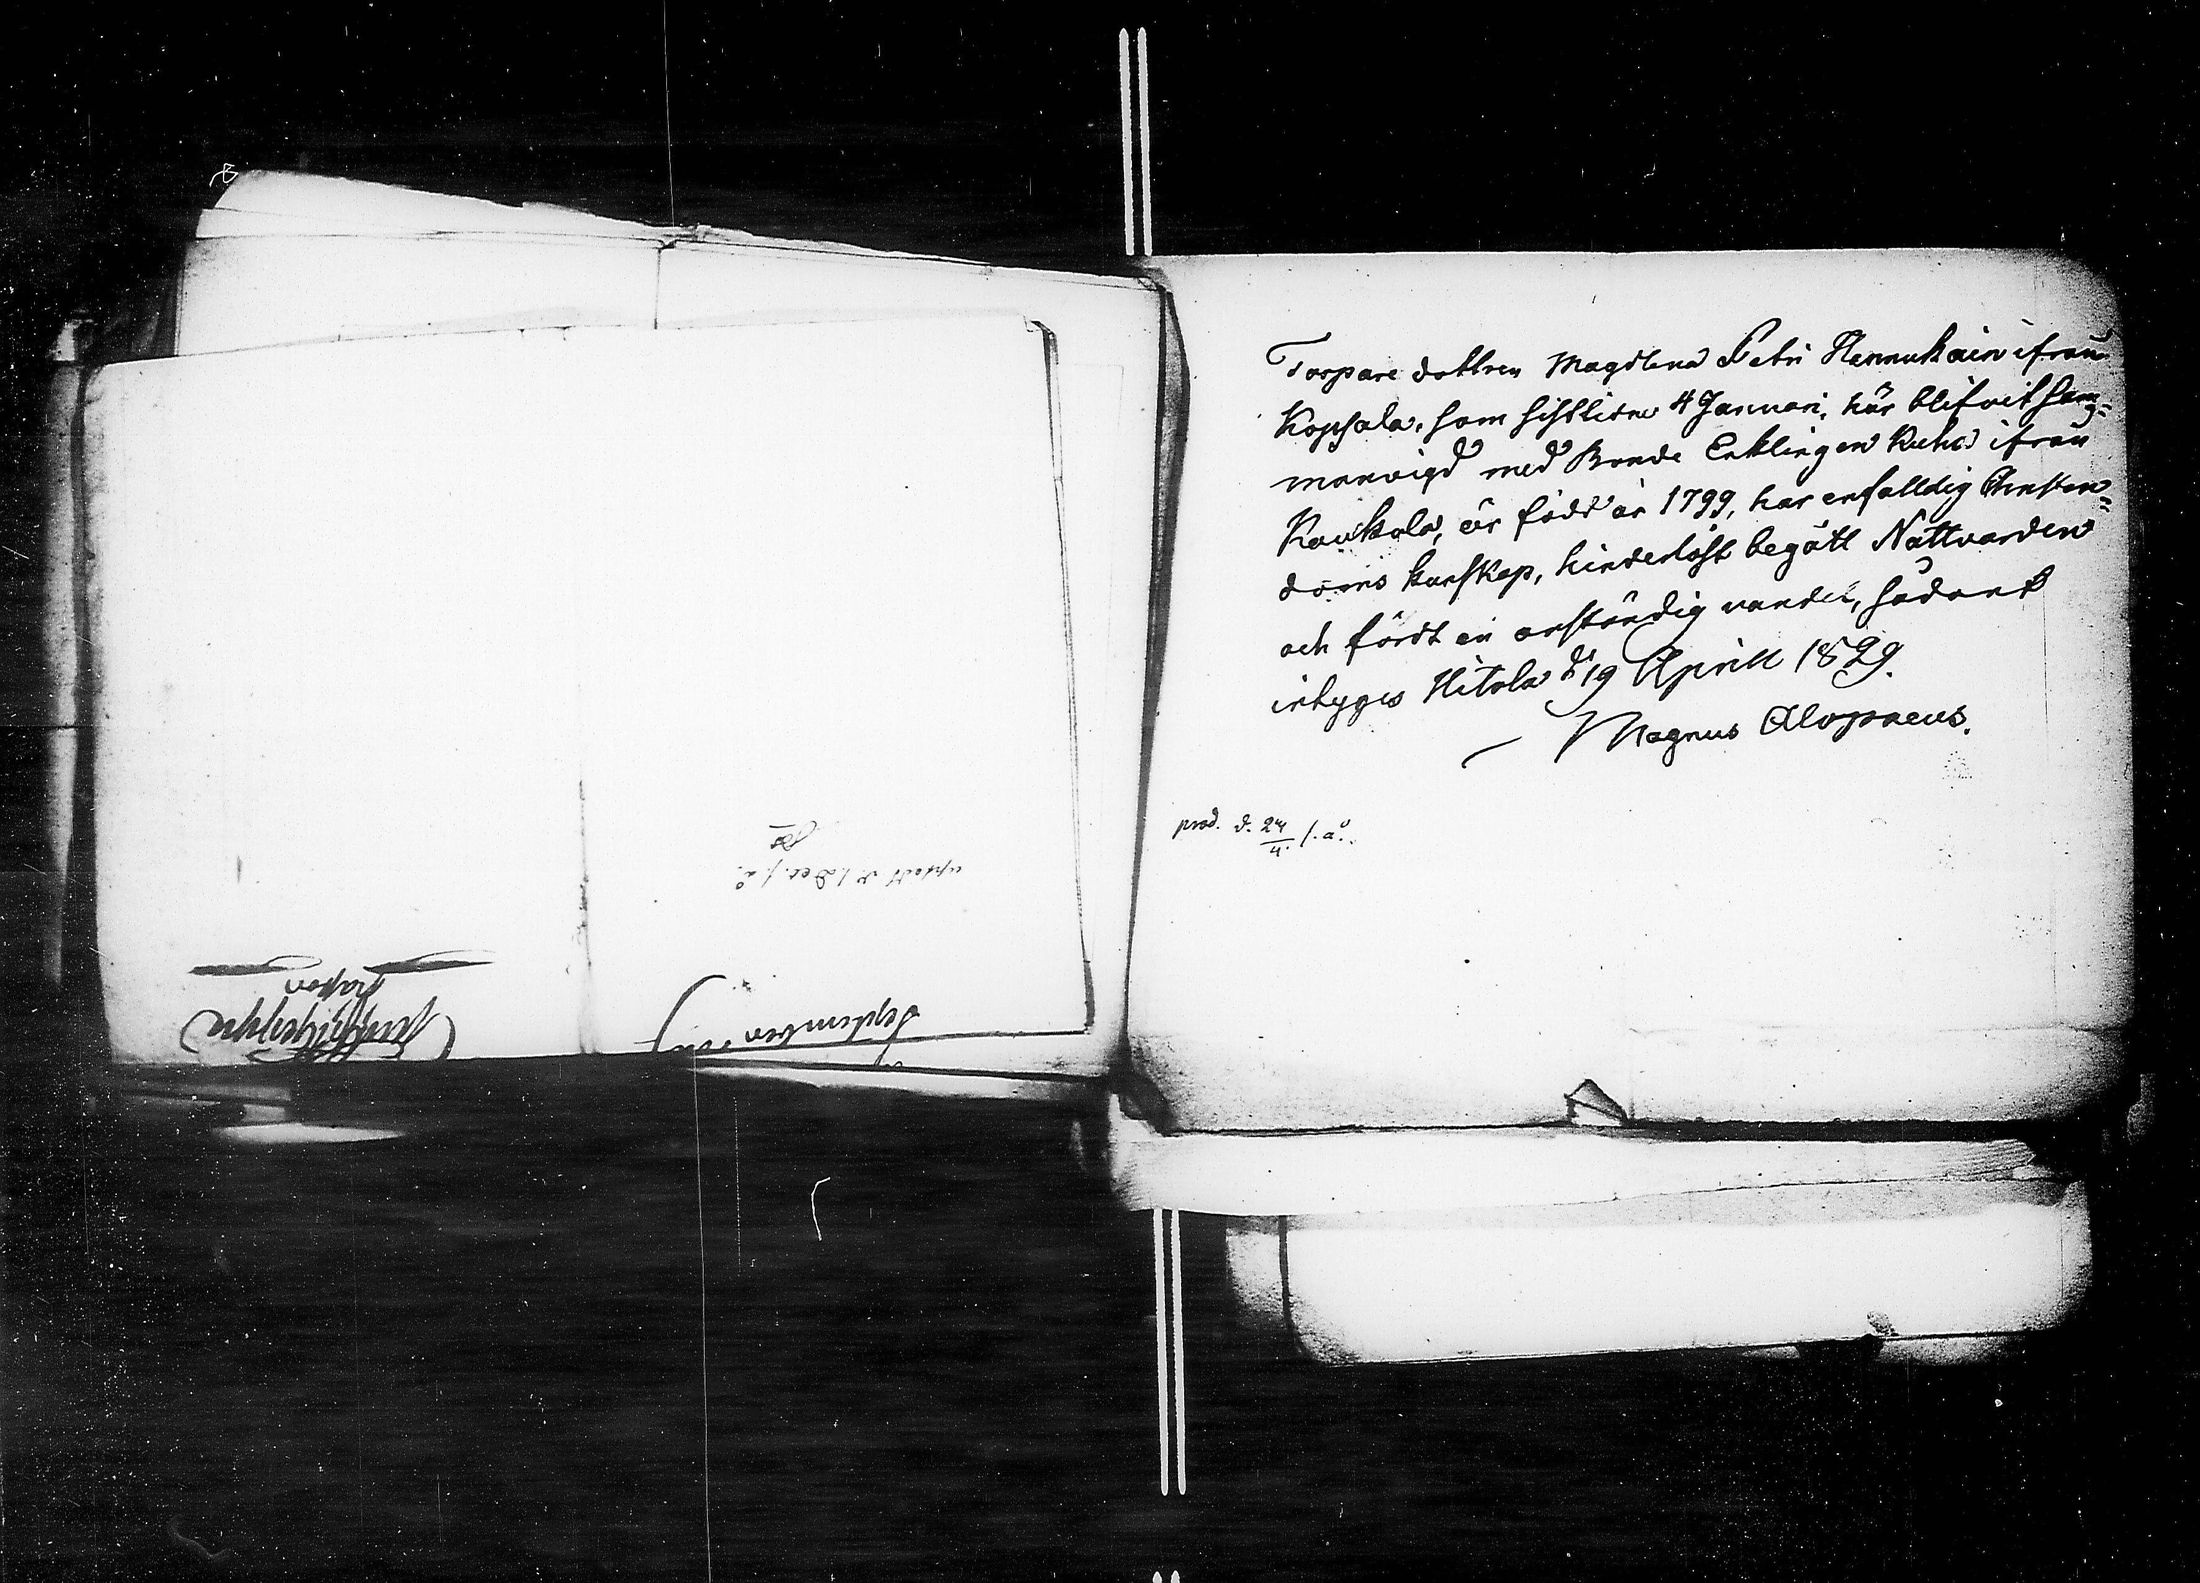 Torpare dottren Magdlena Petri Hennukain ifrån
Kopsala, som sistlidne 4 Januari, här blifvit sam=
manvigd med Bonde Enklingen Kuha ifrån
Kaukola, är född år 1799, har enfalldig Christen=
doms kunskap, hinderlöst begått Nattvarden
och fördt en anständig vandel, sådant
intygas Hitola d. 19 Aprill 1829.
Magnus Alopaeus.
prod. d. 24/4. s. å.
d. 1. Dec. s. å.
September